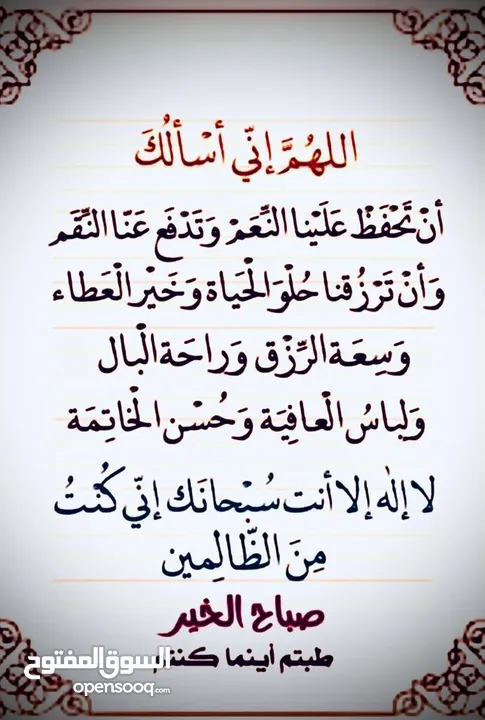 اللهُمَّ إنّي أسْألُكَ
أنْ تَحْفَظْ عَلَيْنا النِّعَمْ وَتَدْفَع عَنّا النِّقَم
وَأنْ تَرْزُقنا حُلْوَ الْحَياة وَخَيْر الْعَطاء
وَسِعَة الرِّزْق وَراحَة الْبال
وَلِباسُ الْعافِيَة وَحُسْن الْخاتِمَة
لا إلٰه إلا أنت سُبْحانَك إنّي كُنْتُ
مِنَ الظّالِمين
صباح الخير
طبتم أينما كنتم
السوق المفتوح
opensooq.com